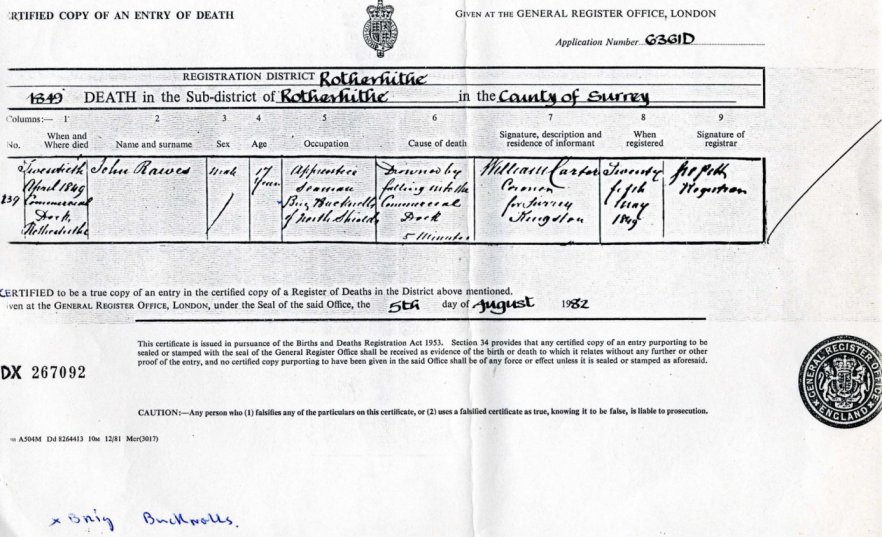 ERTIFIED COPY OF AN ENTRY OF DEATH
GIVEN AT THE GENERAL REGISTER OFFICE, LONDON
Application Number G361D
REGISTRATION DISTRICT Rotherhithe
1849 DEATH in the Sub-district of Rotherhithe in the County of Surrey
Columns:— 1 2 3 4 5 6 7 8 9
No. When and Where died Name and surname Sex Age Occupation Cause of death Signature, description and residence of informant When registered Signature of registrar
Twentieth John Rawes Male 17 Apprentice Drowned by William Carter Twenty
April 1849 years Seaman falling into the Coroner fifth Registrar
239 Commercial Brig Bucknolls Commercial for Surrey May
Dock of North Shields Dock Kingston 1849
Rotherhithe 5 Minutes
CERTIFIED to be a true copy of an entry in the certified copy of a Register of Deaths in the District above mentioned.
iven at the GENERAL REGISTER OFFICE, LONDON, under the Seal of the said Office, the 5th day of August 1982
This certificate is issued in pursuance of the Births and Deaths Registration Act 1953. Section 34 provides that any certified copy of an entry purporting to be
sealed or stamped with the seal of the General Register Office shall be received as evidence of the birth or death to which it relates without any further or other
proof of the entry, and no certified copy purporting to have been given in the said Office shall be of any force or effect unless it is sealed or stamped as aforesaid.
DX 267092
GENERAL REGISTER OFFICE
ENGLAND
CAUTION:—Any person who (1) falsifies any of the particulars on this certificate, or (2) uses a falsified certificate as true, knowing it to be false, is liable to prosecution.
A504M Dd 8264413 10M 12/81 Mcr(3017)
x Brig Bucknolls.